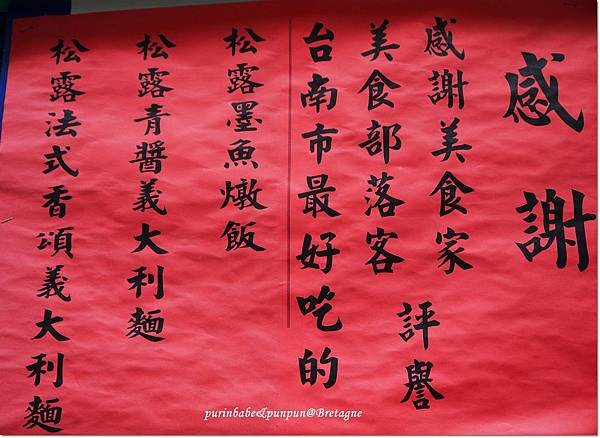 感謝
感謝美食家
美食部落客
評譽
台南市最好吃的
松露墨魚燉飯
松露青醬義大利麵
松露法式香頌義大利麵
purinbabe&punpun@Bretagne